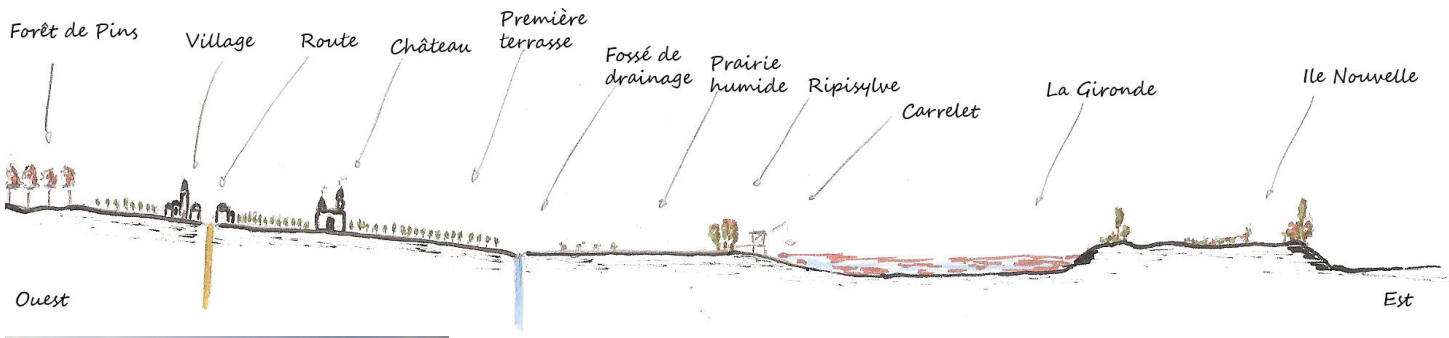 Forêt de Pins
Village
Route
Château
Première
terrasse
Fossé de
drainage
Prairie
humide
Ripisylve
Carrelet
La Gironde
Ile Nouvelle
Ouest
Est